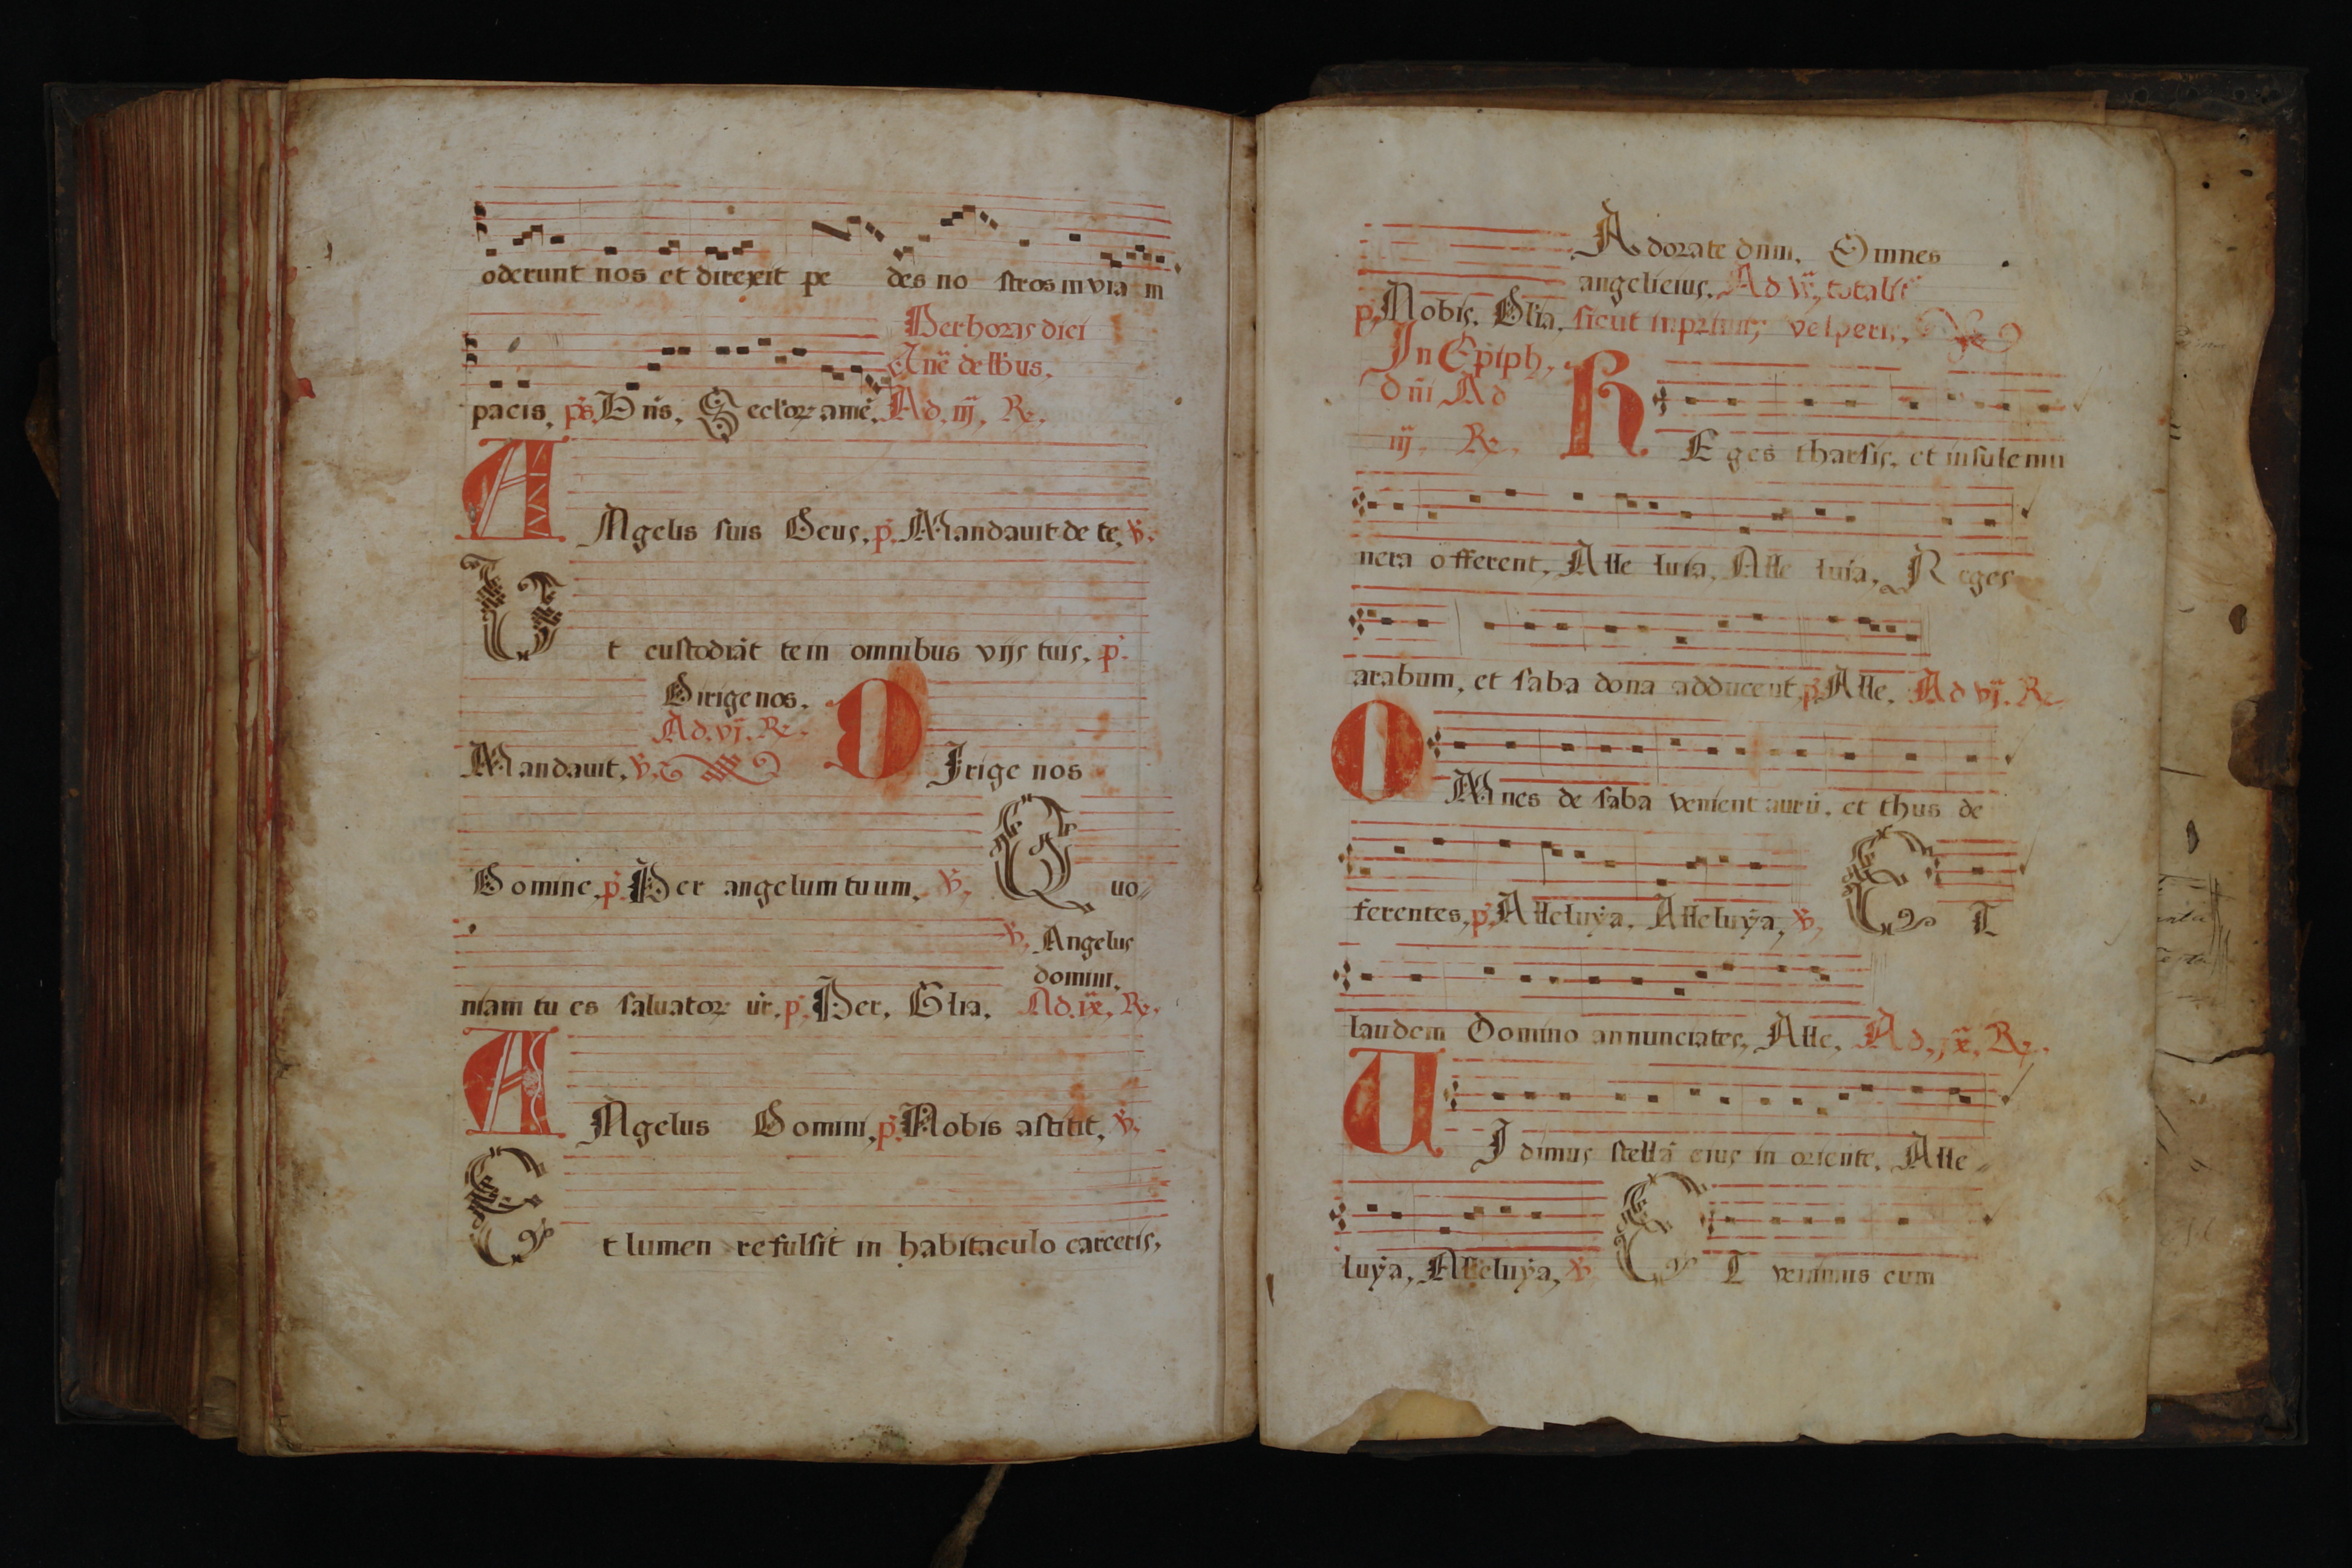 oderunt nos et direxit pe des no stros in via m
Per horas dici
Añe de łłbus.
pacis, ps. Dñs. Seclor amē. Ad. iij. R.
ANgelis suis Deus, p. Mandauit de te, v.
Ut custodiāt te in omnibus vijs tuis. p.
Dirige nos.
Ad. vj. R.
Mandauit. v. DIrige nos
Domine, p. Per angelum tuum. v. Quo
v. Angelus
domini.
niam tu es saluator ur. p. Per. Glia. Ad. ix, R.
ANgelus Domini, p. Nobis astitit, v.
Et lumen refulsit in habitaculo carceris,
Adorate dnm. Omnes
angeli eius. Ad
p. Nobis. Glia, sicut in primis vesperis.
In Epiph.
dñi Ad
iij. R. REges tharsis. et insule mu
nera offerent, Alle luia, Alle luia, Reges
arabum, et saba dona adducent, p. Alle. Ad vj. R.
OMnes de saba venient aurū. et thus de
ferentes, p. Alleluÿa. Alleluÿa, v. ET
laudem Domino annunciates, Alle. Ad. ix. R.
UIdimus stellā eius in oriente. Alle
luÿa, Alleluÿa, v. ET venimus cum